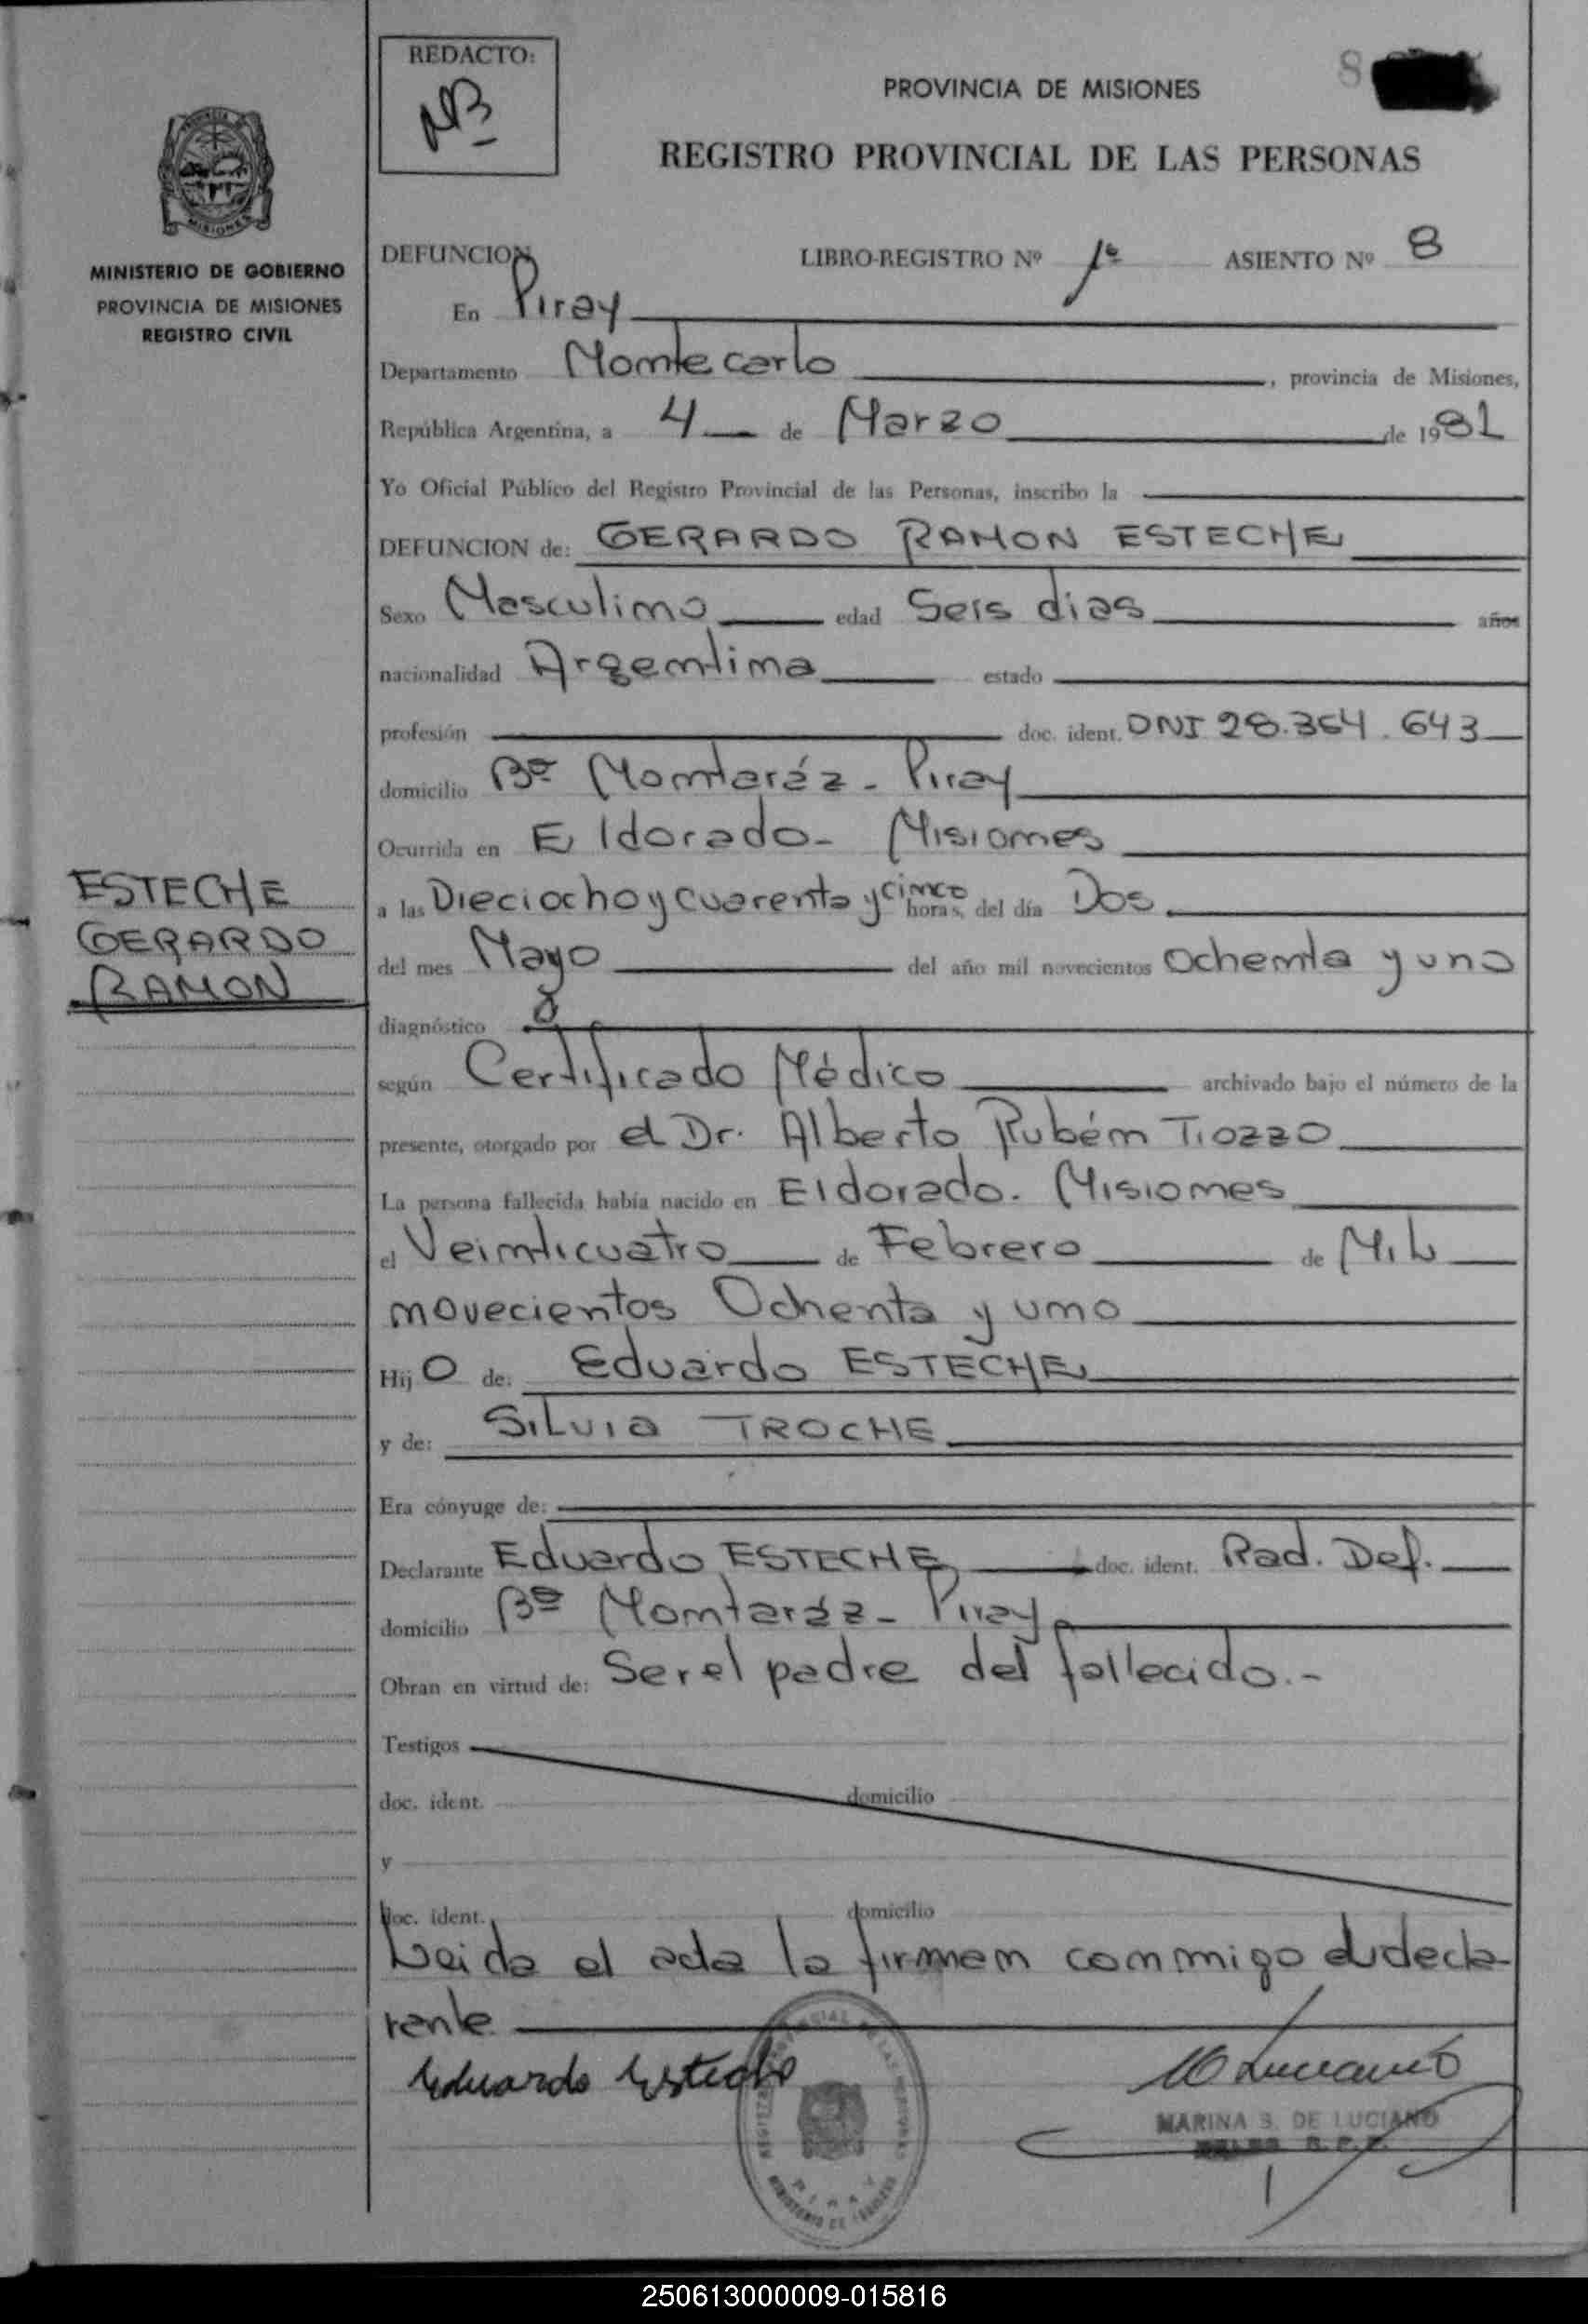 REDACTO:
NB
PROVINCIA DE MISIONES
8
REGISTRO PROVINCIAL DE LAS PERSONAS
MISIONES
MINISTERIO DE GOBIERNO
PROVINCIA DE MISIONES
REGISTRO CIVIL
DEFUNCION LIBRO-REGISTRO Nº 1º ASIENTO Nº 8
En Piray
Departamento Montecarlo, provincia de Misiones,
República Argentina, a 4 de Marzo de 1981
Yo Oficial Público del Registro Provincial de las Personas, inscribo la
DEFUNCION de: GERARDO RAMON ESTECHE
Sexo Masculino edad Seis dias años
nacionalidad Argentina estado
profesión doc. ident. DNI 28.364.643
domicilio Bº Montaráz - Piray
Ocurrida en Eldorado - Misiones
a las Dieciocho y cuarenta y cinco horas, del día Dos
del mes Mayo del año mil novecientos ochenta y uno
diagnóstico
según Certificado Médico archivado bajo el número de la
presente, otorgado por el Dr. Alberto Rubén Tiozzo
La persona fallecida había nacido en Eldorado. Misiones
el Veinticuatro de Febrero de Mil
novecientos Ochenta y uno
Hijo de: Eduardo ESTECHE
y de: Silvia TROCHE
Era cónyuge de:
Declarante Eduardo ESTECHE doc. ident. Rad. Def.
domicilio Bº Montaráz - Piray
Obran en virtud de: Ser el padre del fallecido.-
Testigos
doc. ident. domicilio
y
doc. ident. domicilio
Leida el acta la firman conmigo el decla-
rante
ESTECHE
GERARDO
RAMON
Eduardo Esteche
MARINA S. DE LUCIANO
R.P.P.
PIRAY
250613000009-015816